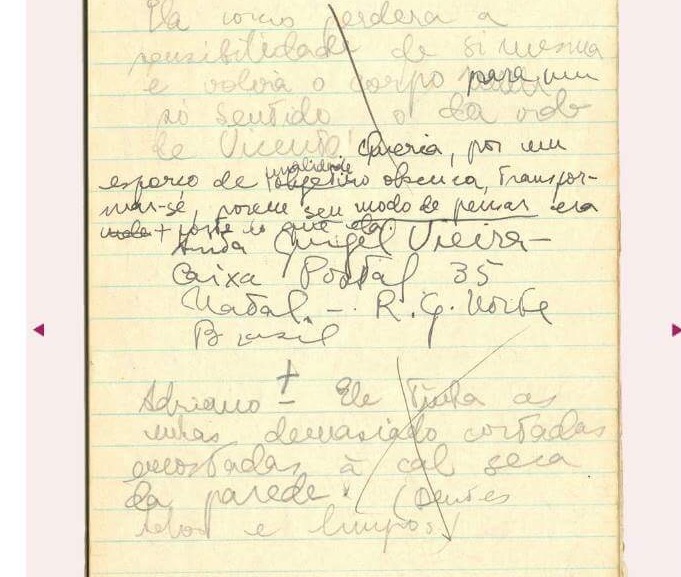 Ela como perdera a
sensibilidade de si mesma
e volvia o corpo para um
só sentido o da vida
de Vicente! Queria, por um
esforço de objetivo obscura, transfor-
mar-se, porém seu modo de pensar era
+ forte do que ela.
Gurgel Vieira -
Caixa Postal 35
Natal. - . R. G. Norte
Brasil
Adriano ± Ele tinha as
unhas demasiado cortadas
encostadas à cal seca
da parede. (Dentes
e limpos)